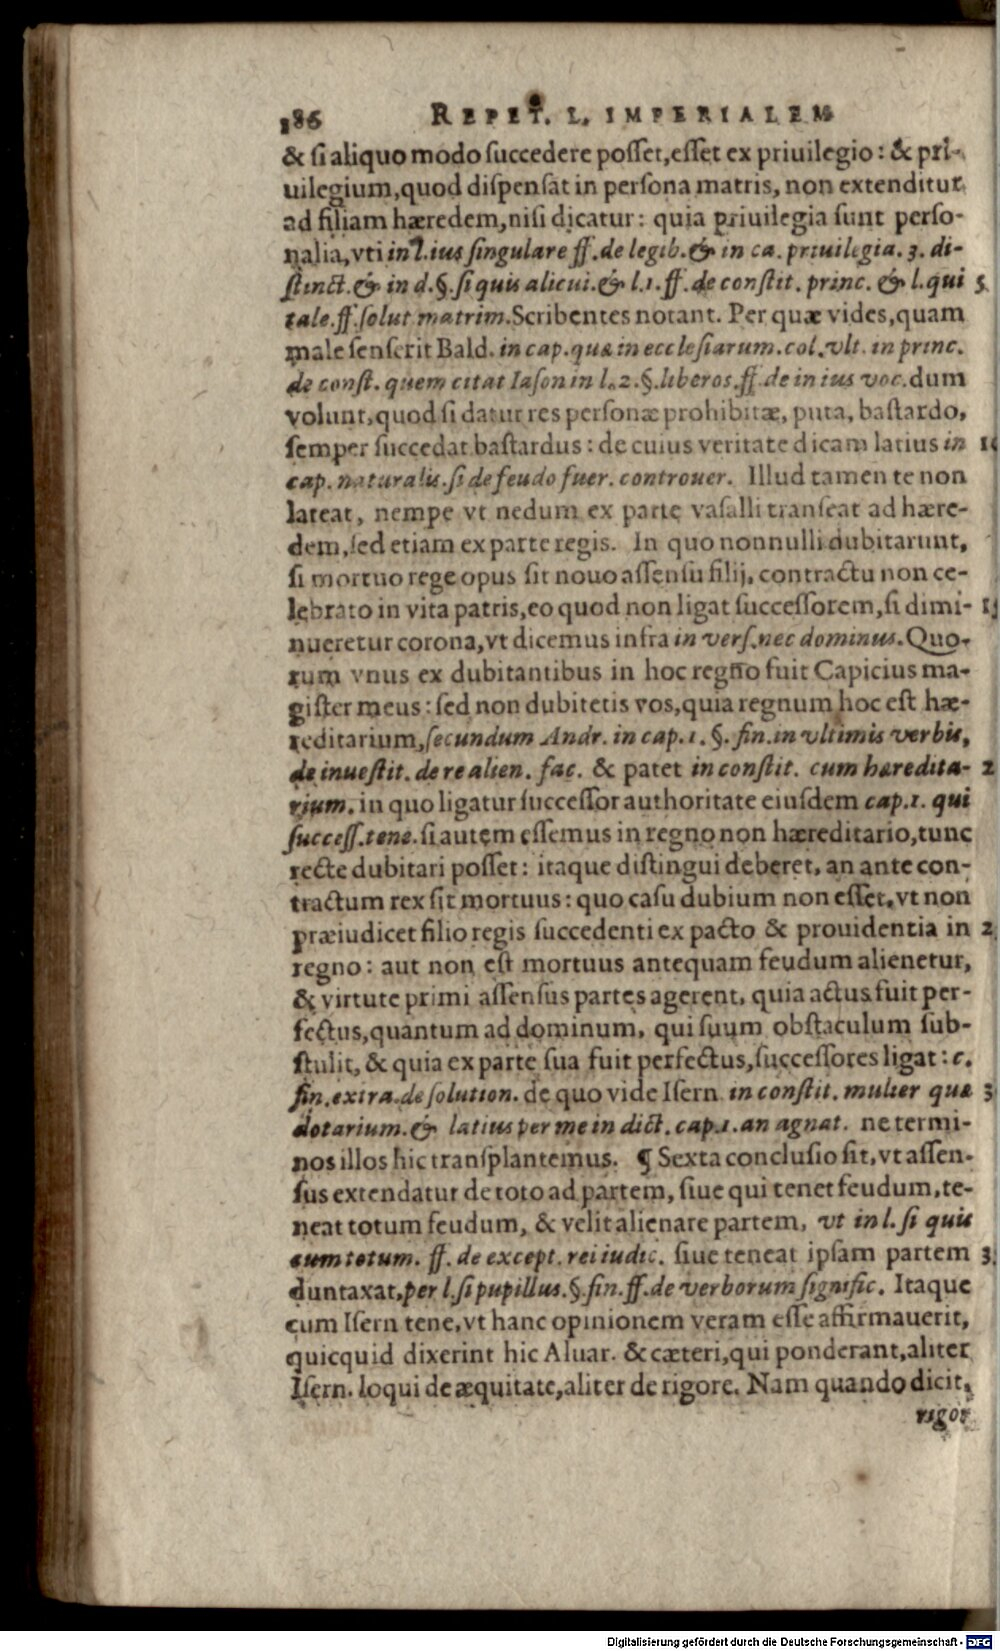 186 REPET. L. IMPERIALEM
& si aliquo modo succedere posset, esset ex priuilegio: & pri-
uilegium, quod dispensat in persona matris, non extenditur
ad filiam hæredem, nisi dicatur: quia priuilegia sunt perso-
nalia, vti in l. ius singulare ff. de legib. & in ca. priuilegia. 3. di-
stinct. & in d. §. si quis alicui. & l. 1. ff. de constit. princ. & l. qui 5
tale. ff. solut matrim. Scribentes notant. Per quæ vides, quam
male senserit Bald. in cap. quæ in ecclesiarum. col. vlt. in princ.
de const. quem citat Iason in l. 2. §. liberos. ff. de in ius voc. dum
volunt, quod si datur res personæ prohibitæ, puta, bastardo,
semper succedat bastardus: de cuius veritate dicam latius in 1
cap. naturalis. si de feudo fuer. controuer. Illud tamen te non
lateat, nempe vt nedum ex parte vasalli transeat ad hære-
dem, sed etiam ex parte regis. In quo nonnulli dubitarunt,
si mortuo rege opus sit nouo assensu filij, contractu non ce-
lebrato in vita patris, eo quod non ligat successorem, si dimi- 15
nueretur corona, vt dicemus infra in vers. nec dominus. Quo-
rum vnus ex dubitantibus in hoc regno fuit Capicius ma-
gister meus: sed non dubitetis vos, quia regnum hoc est hæ-
reditarium, secundum Andr. in cap. 1. §. fin. in vltimis verbis,
de inuestit. de re alien. fac. & patet in constit. cum hæredita- 2
rium. in quo ligatur successor authoritate eiusdem cap. 1. qui
success. tene. si autem essemus in regno non hæreditario, tunc
recte dubitari posset: itaque distingui deberet, an ante con-
tractum rex sit mortuus: quo casu dubium non esset, vt non
præiudicet filio regis succedenti ex pacto & prouidentia in 2
regno: aut non est mortuus antequam feudum alienetur,
& virtute primi assensus partes agerent, quia actus fuit per-
fectus, quantum ad dominum, qui suum obstaculum sub-
stulit, & quia ex parte sua fuit perfectus, successores ligat: c.
fin. extra. de solution. de quo vide Isern in constit. mulier quæ 3
dotarium. & latius per me in dict. cap. 1. an agnat. ne termi-
nos illos hic transplantemus. ¶ Sexta conclusio sit, vt assen-
sus extendatur de toto ad partem, siue qui tenet feudum, te-
neat totum feudum, & velit alienare partem, vt in l. si quis
cum totum. ff. de except. rei iudic. siue teneat ipsam partem 3
duntaxat, per l. si pupillus. §. fin. ff. de verborum signific. Itaque
cum Isern tene, vt hanc opinionem veram esse affirmauerit,
quicquid dixerint hic Aluar. & cæteri, qui ponderant, aliter
Isern. loqui de æquitate, aliter de rigore. Nam quando dicit,
rigor
Digitalisierung gefördert durch die Deutsche Forschungsgemeinschaft - DFG